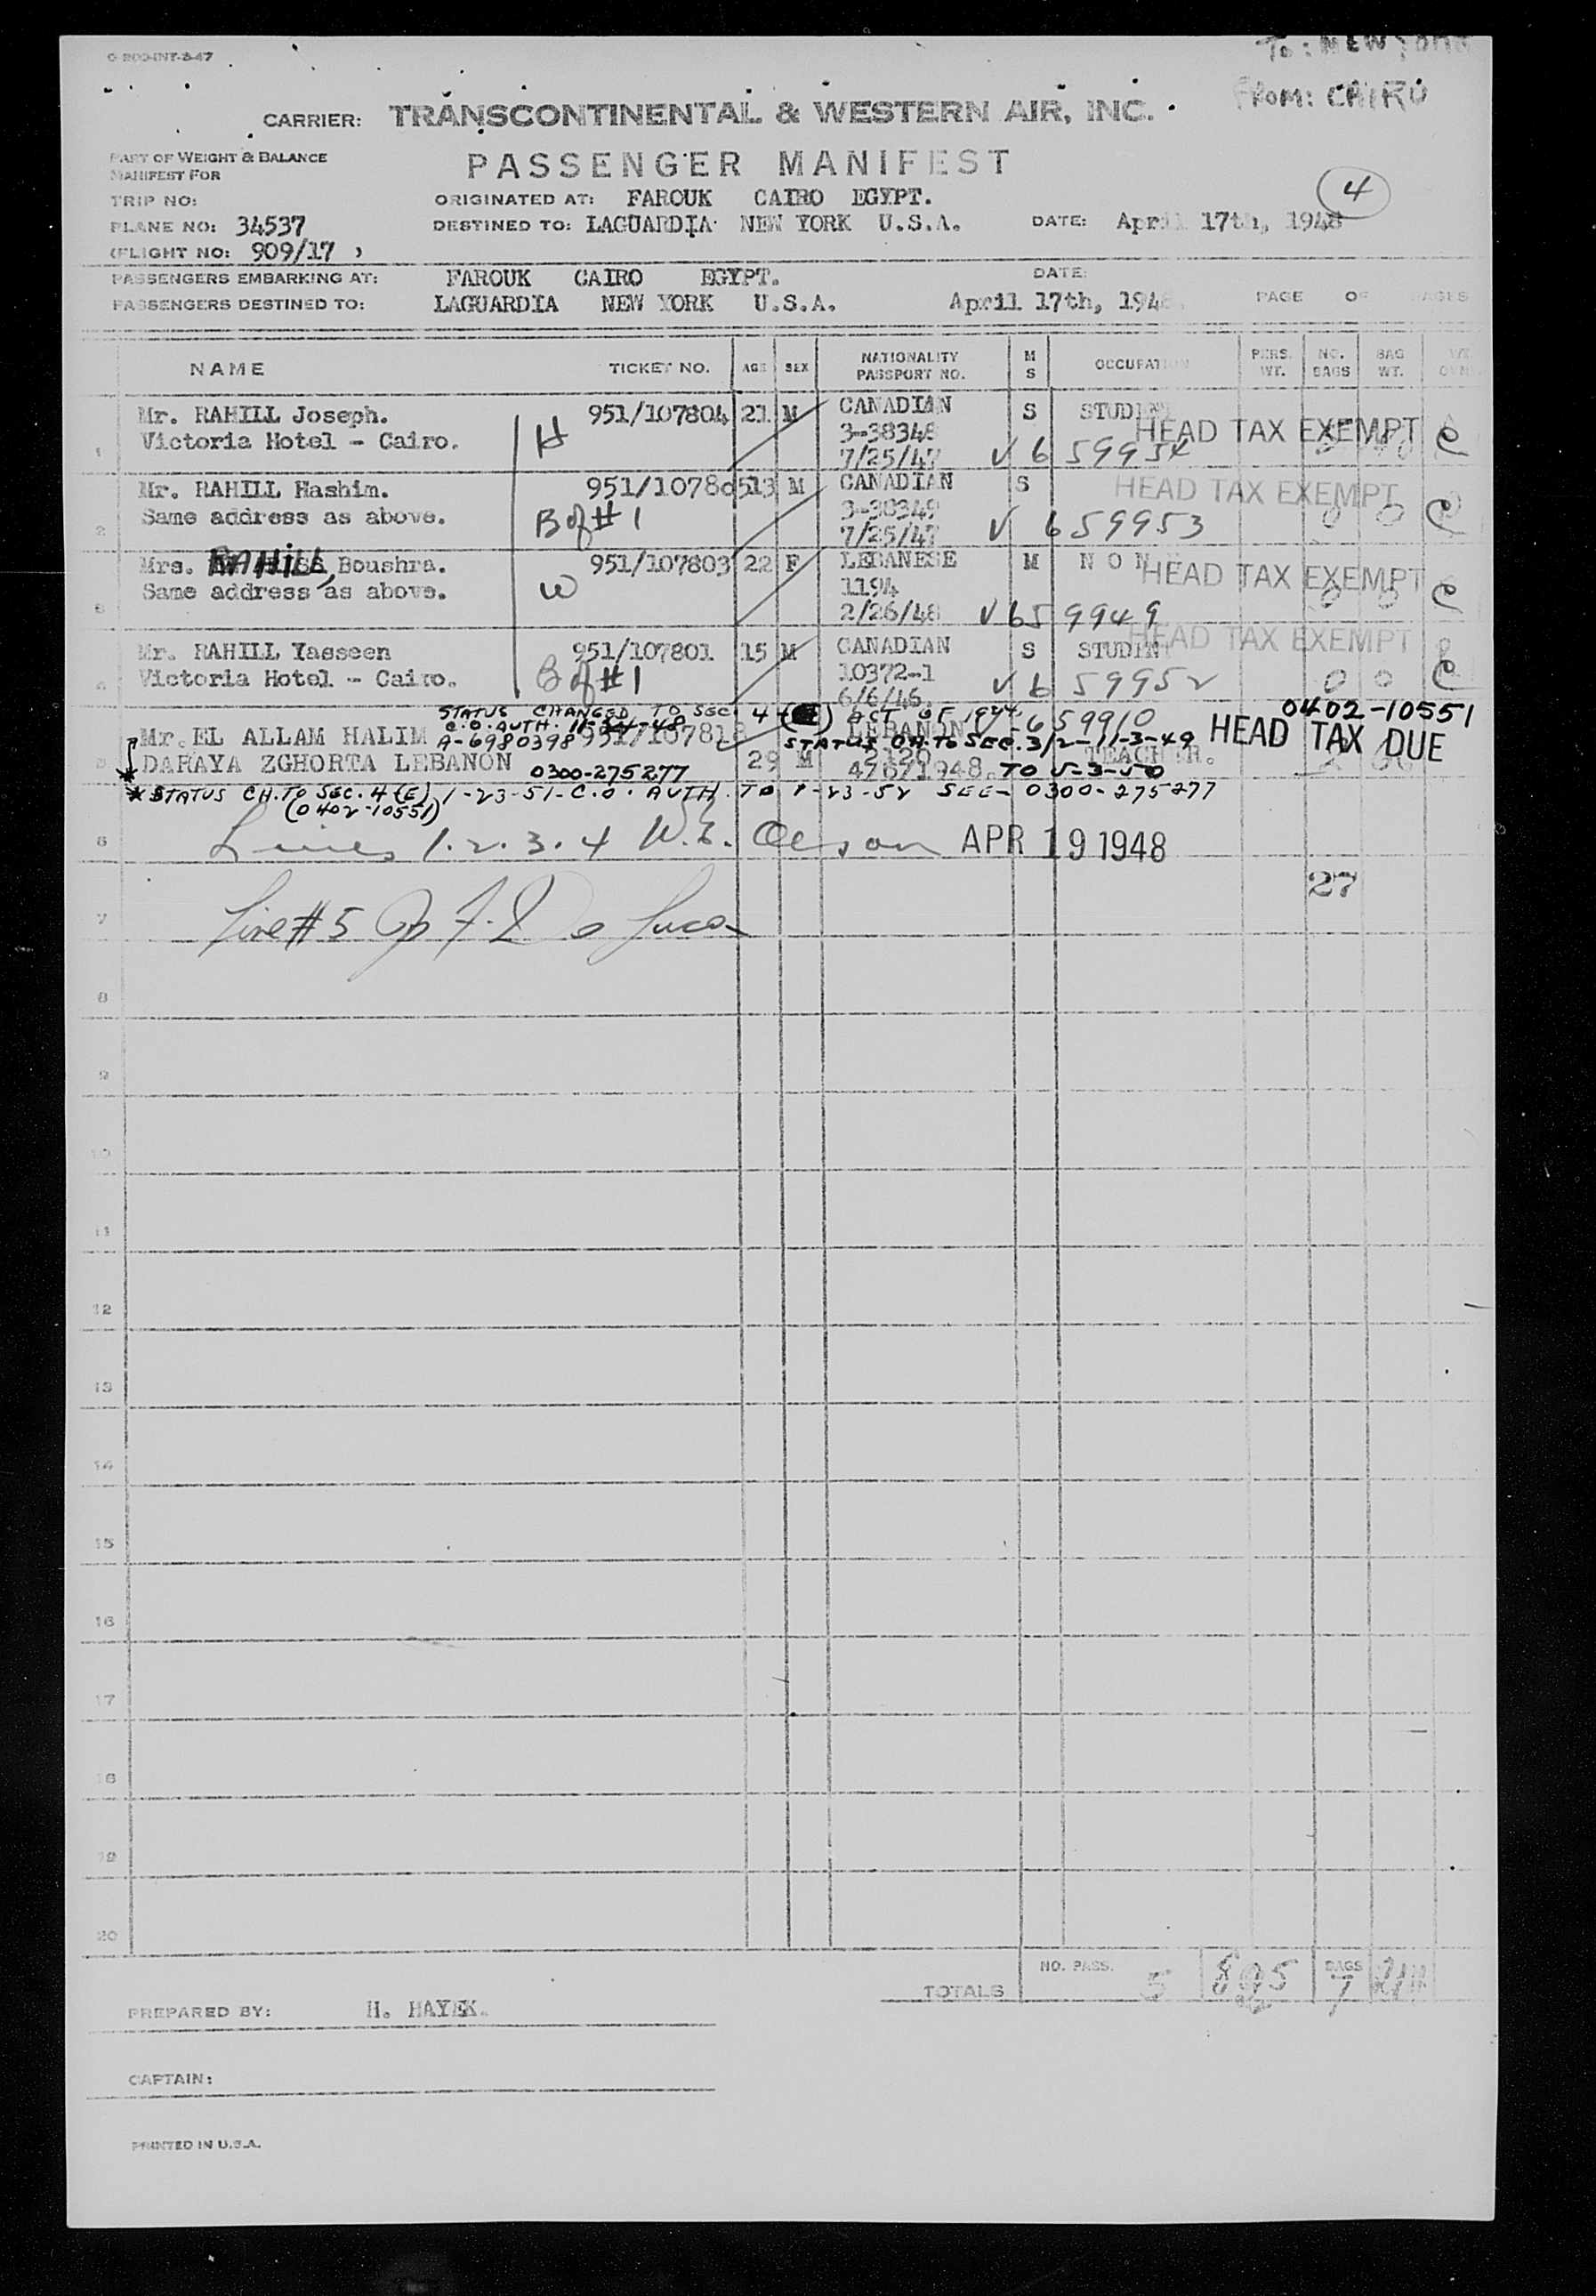 O-200-INT-3-47
To: NEW YORK
FROM: CAIRO
CARRIER: TRANSCONTINENTAL & WESTERN AIR, INC.
PART OF WEIGHT & BALANCE
MANIFEST FOR
PASSENGER MANIFEST
4
TRIP NO:
ORIGINATED AT: FAROUK CAIRO EGYPT.
PLANE NO: 34537
DESTINED TO: LAGUARDIA NEW YORK U.S.A.
DATE: April 17th, 1948
(FLIGHT NO: 909/17 )
PASSENGERS EMBARKING AT: FAROUK CAIRO EGYPT. DATE:
PASSENGERS DESTINED TO: LAGUARDIA NEW YORK U.S.A. April 17th, 1948 PAGE OF PAGES
NAME TICKET NO. AGE SEX NATIONALITY PASSPORT NO. M S OCCUPATION PERS. WT. NO. BAGS BAG WT.
1 Mr. RAHILL Joseph. H 951/107804 21 M CANADIAN S STUDENT
Victoria Hotel - Cairo. 3-38348 HEAD TAX EXEMPT C
7/25/47 V 6 59954
2 Mr. RAHILL Hashim. 951/107805 13 M CANADIAN S HEAD TAX EXEMPT
Same address as above. B of #1 3-38349 0 0 C
7/25/47 V 659953
3 Mrs. RAHILL, Boushra. 951/107803 22 F LEBANESE M NON HEAD TAX EXEMPT
Same address as above. W 1194 0 0 C
2/26/48 V 659949
4 Mr. RAHILL Yasseen 951/107801 15 M CANADIAN S STUDENT HEAD TAX EXEMPT
Victoria Hotel - Cairo. B of #1 10372-1 0 0 C
6/6/46 V 6 59952
STATUS CHANGED TO SEC. 4 ACT OF 1924 0402-10551
C.O. AUTH.
5 Mr. EL ALLAM HALIM A-6980398 951/107818 29 M LEBANON V-659910 HEAD TAX DUE
STATUS CH. TO SEC. 3/2-11-3-49
DARAYA ZGHORTA LEBANON 0300-275277 2120 TEACHER.
4/6/1948. TO 5-3-50
* STATUS CH. TO SEC. 4 (E) 1-23-51-C.O. AUTH. TO 1-23-52 SEE- 0300-275277
(0402-10551)
6 Lines 1.2.3.4 W.E. Olson APR 19 1948
27
7 Line #5
8
9
10
11
12
13
14
15
16
17
18
19
20
TOTALS NO. PASS. 5 895 BAGS 7
PREPARED BY: H. HAYEK.
CAPTAIN:
PRINTED IN U.S.A.